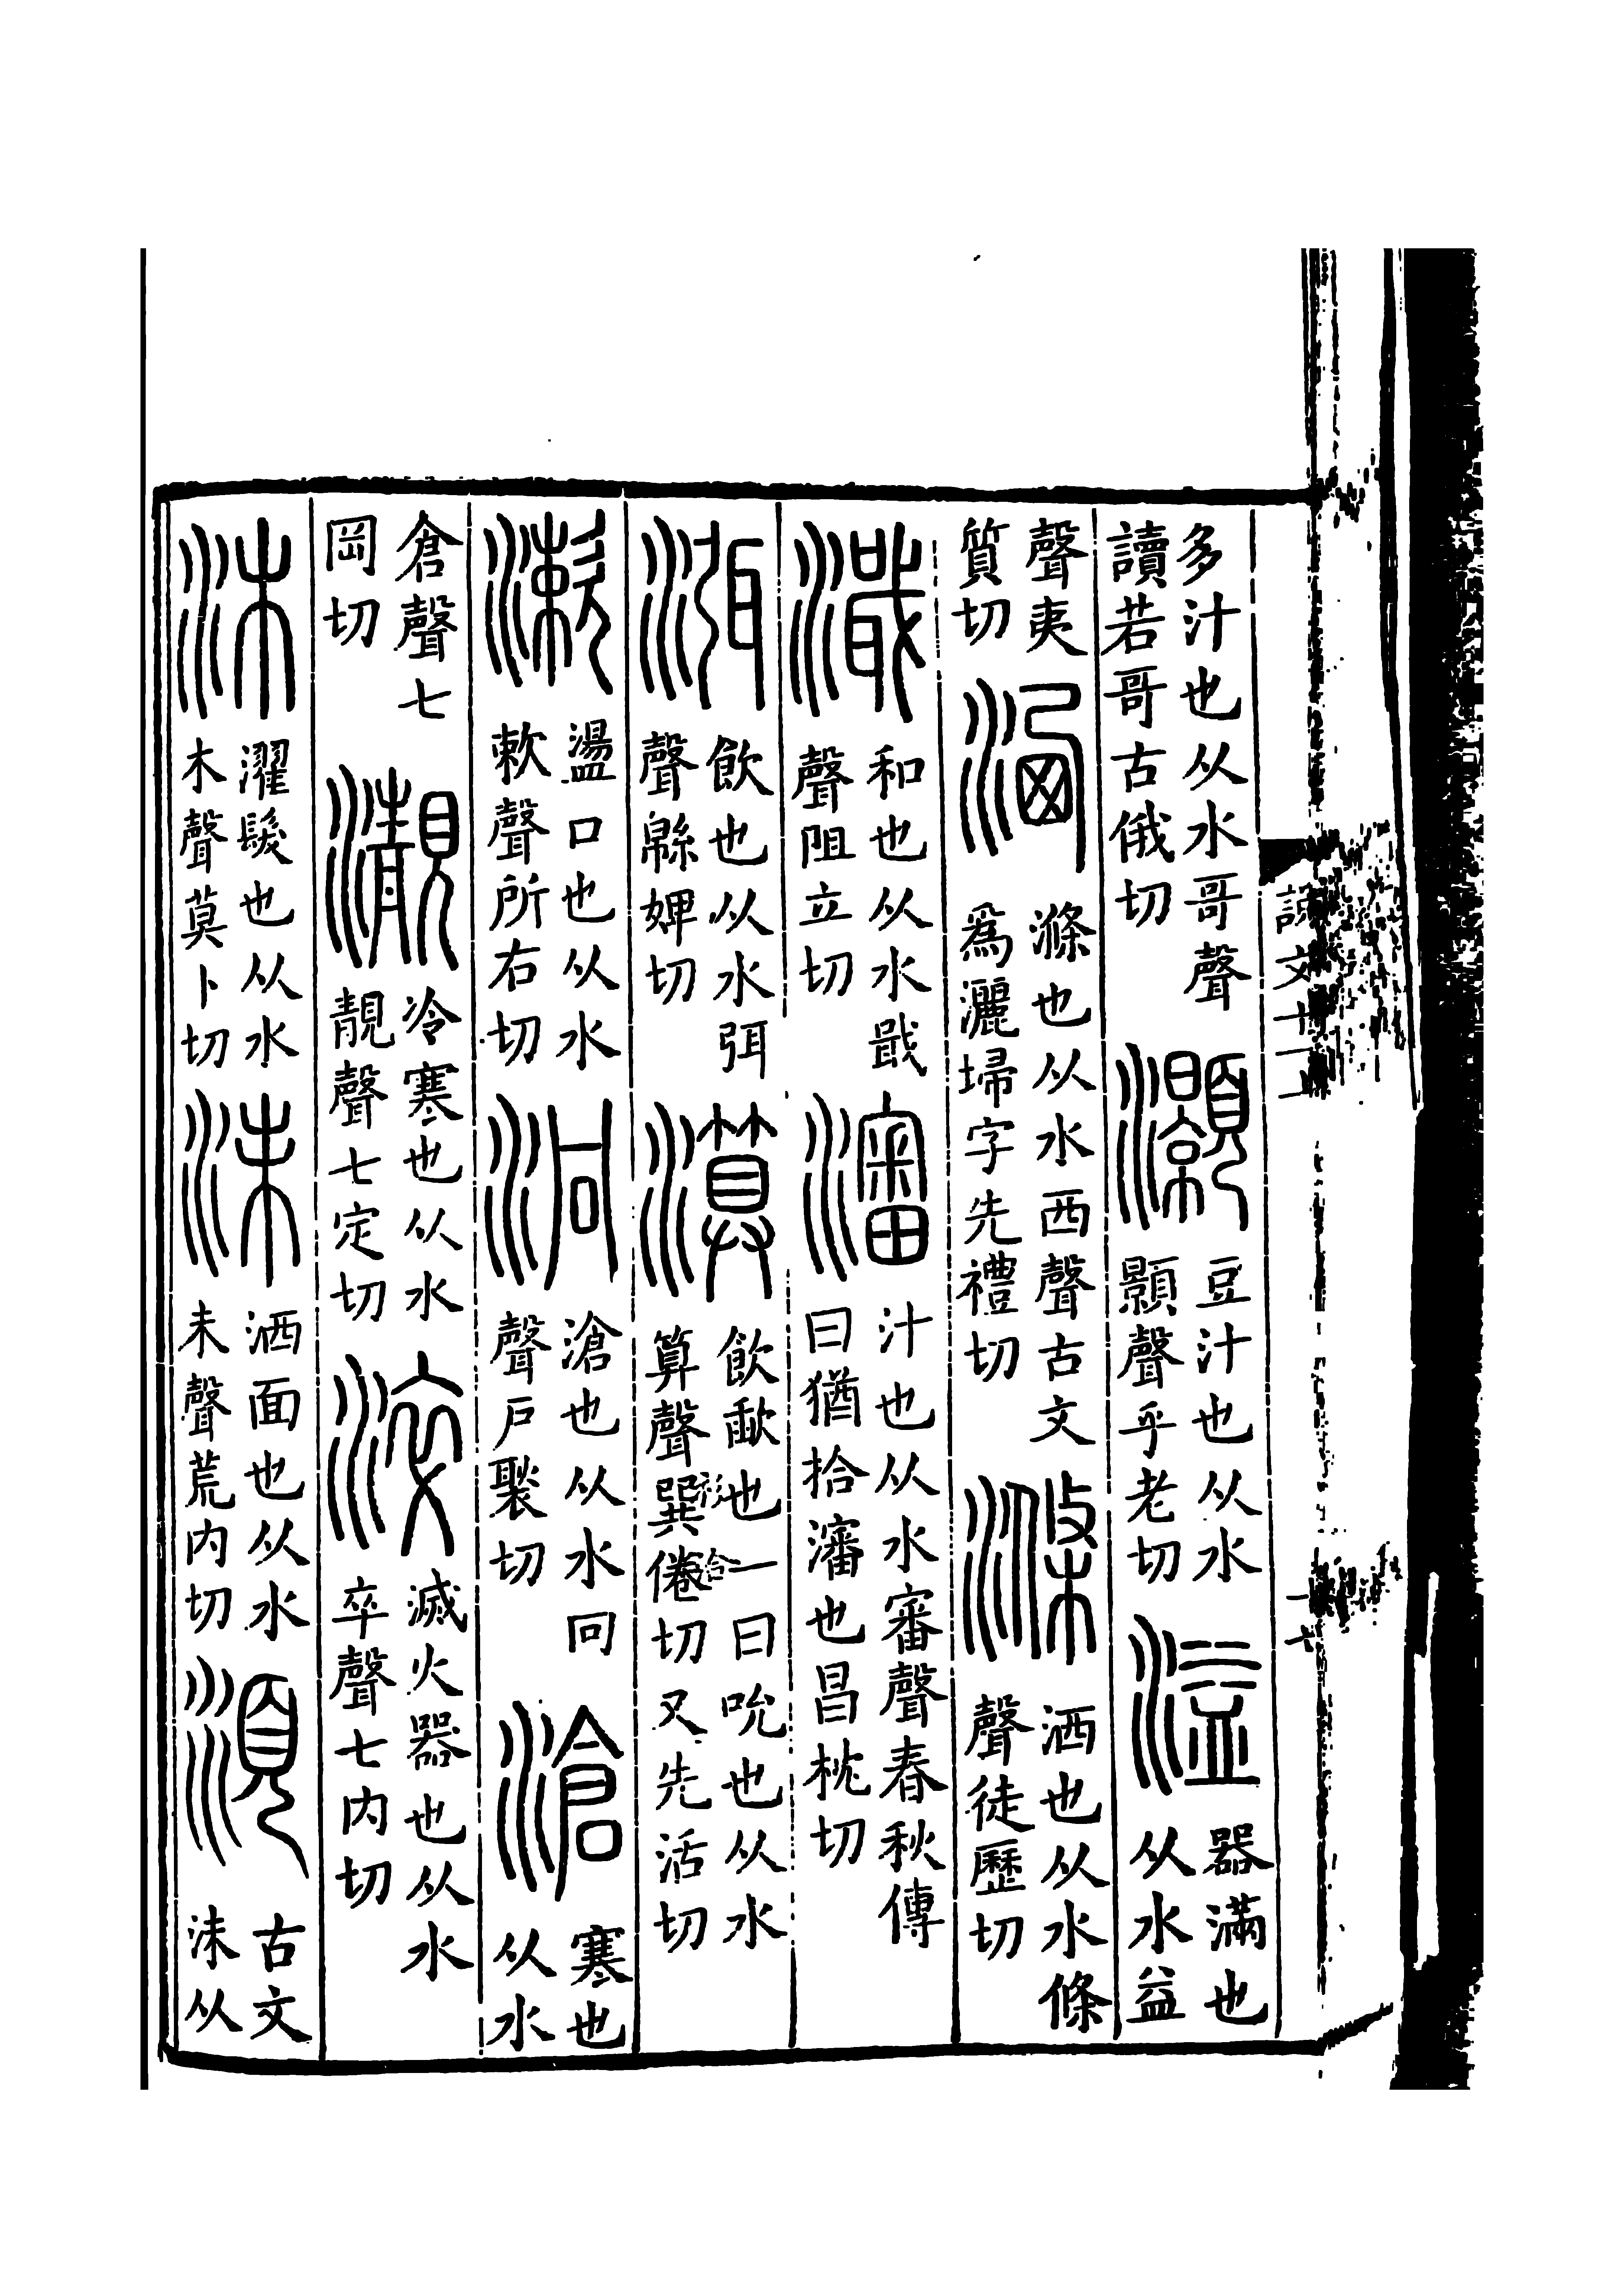 多汁也从水哥聲讀若哥古俄切灝豆汁也从水顥聲乎老切溢器滿也从水益
聲夷質切洒滌也从水西聲古文爲灑埽字先禮切滌洒也从水條聲徒歷切
濈和也从水戢聲阻立切瀋汁也从水審聲春秋傳曰猶拾瀋也昌枕切
渳飲也从水弭聲緜婢切㵣飲歃也一曰吮也从水算聲巽倦切又先活切
漱盪口也从水欶聲所右切泂滄也从水冋聲戶褧切滄寒也从水
倉聲七岡切瀞冷寒也从水靚聲七定切淬滅火器也从水卒聲七內切
沐濯髮也从水木聲莫卜切沬洒面也从水未聲荒內切湏古文沬从
說文十一上
十七